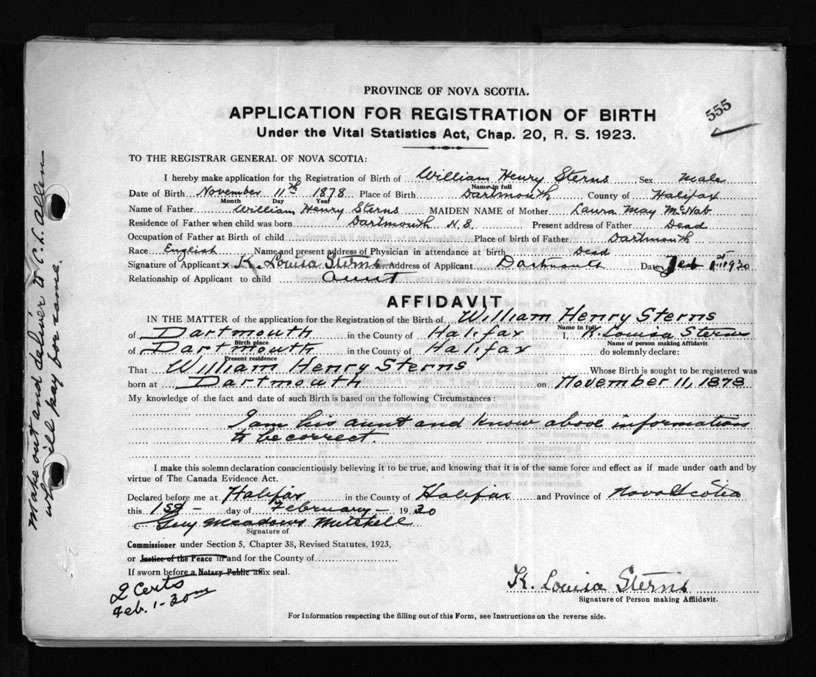 PROVINCE OF NOVA SCOTIA.
555
APPLICATION FOR REGISTRATION OF BIRTH
Under the Vital Statistics Act, Chap. 20, R. S. 1923.
TO THE REGISTRAR GENERAL OF NOVA SCOTIA:
I hereby make application for the Registration of Birth of William Henry Sterns Sex Male
Name in full
Date of Birth November 11th 1878 Place of Birth Dartmouth County of Halifax
Month Day Year
Name of Father William Henry Sterns MAIDEN NAME of Mother Laura May McNab
Residence of Father when child was born Dartmouth N.S. Present address of Father Dead
Occupation of Father at Birth of child Place of birth of Father Dartmouth
Race English Name and present address of Physician in attendance at birth Dead
Signature of Applicant x K. Louisa Sterns Address of Applicant Dartmouth Date Feb 1st 1930
Relationship of Applicant to child aunt
AFFIDAVIT
IN THE MATTER of the application for the Registration of the Birth of William Henry Sterns
Name in full
of Dartmouth in the County of Halifax I, K. Louisa Sterns
Birth place Name of person making Affidavit
of Dartmouth in the County of Halifax do solemnly declare:
Present residence
That William Henry Sterns Whose Birth is sought to be registered was
born at Dartmouth on November 11, 1878
My knowledge of the fact and date of such Birth is based on the following Circumstances:
I am his aunt and know above information
to be correct.
I make this solemn declaration conscientiously believing it to be true, and knowing that it is of the same force and effect as if made under oath and by
virtue of The Canada Evidence Act.
Declared before me at Halifax in the County of Halifax and Province of Nova Scotia
this 1st day of February 1930
Guy Meadows Mitchell
Signature of
Commissioner under Section 5, Chapter 38, Revised Statutes, 1923,
or Justice of the Peace in and for the County of
If sworn before a Notary Public affix seal.
2 Certs
Feb. 1-30
K. Louisa Sterns
Signature of Person making Affidavit.
For Information respecting the filling out of this Form, see Instructions on the reverse side.
Make out and deliver to C. L. Allen
who will pay for same.